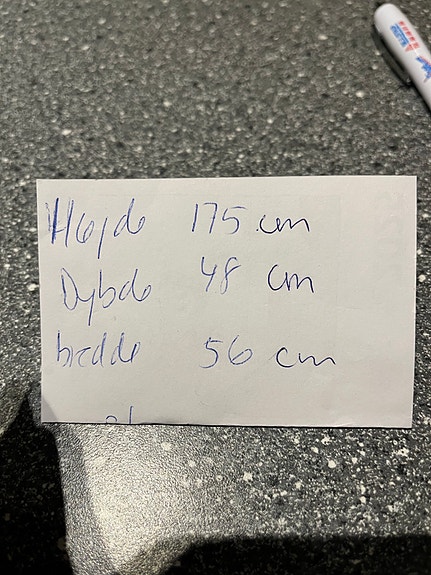 Højde 175 cm
Dybde 48 cm
bredde 56 cm